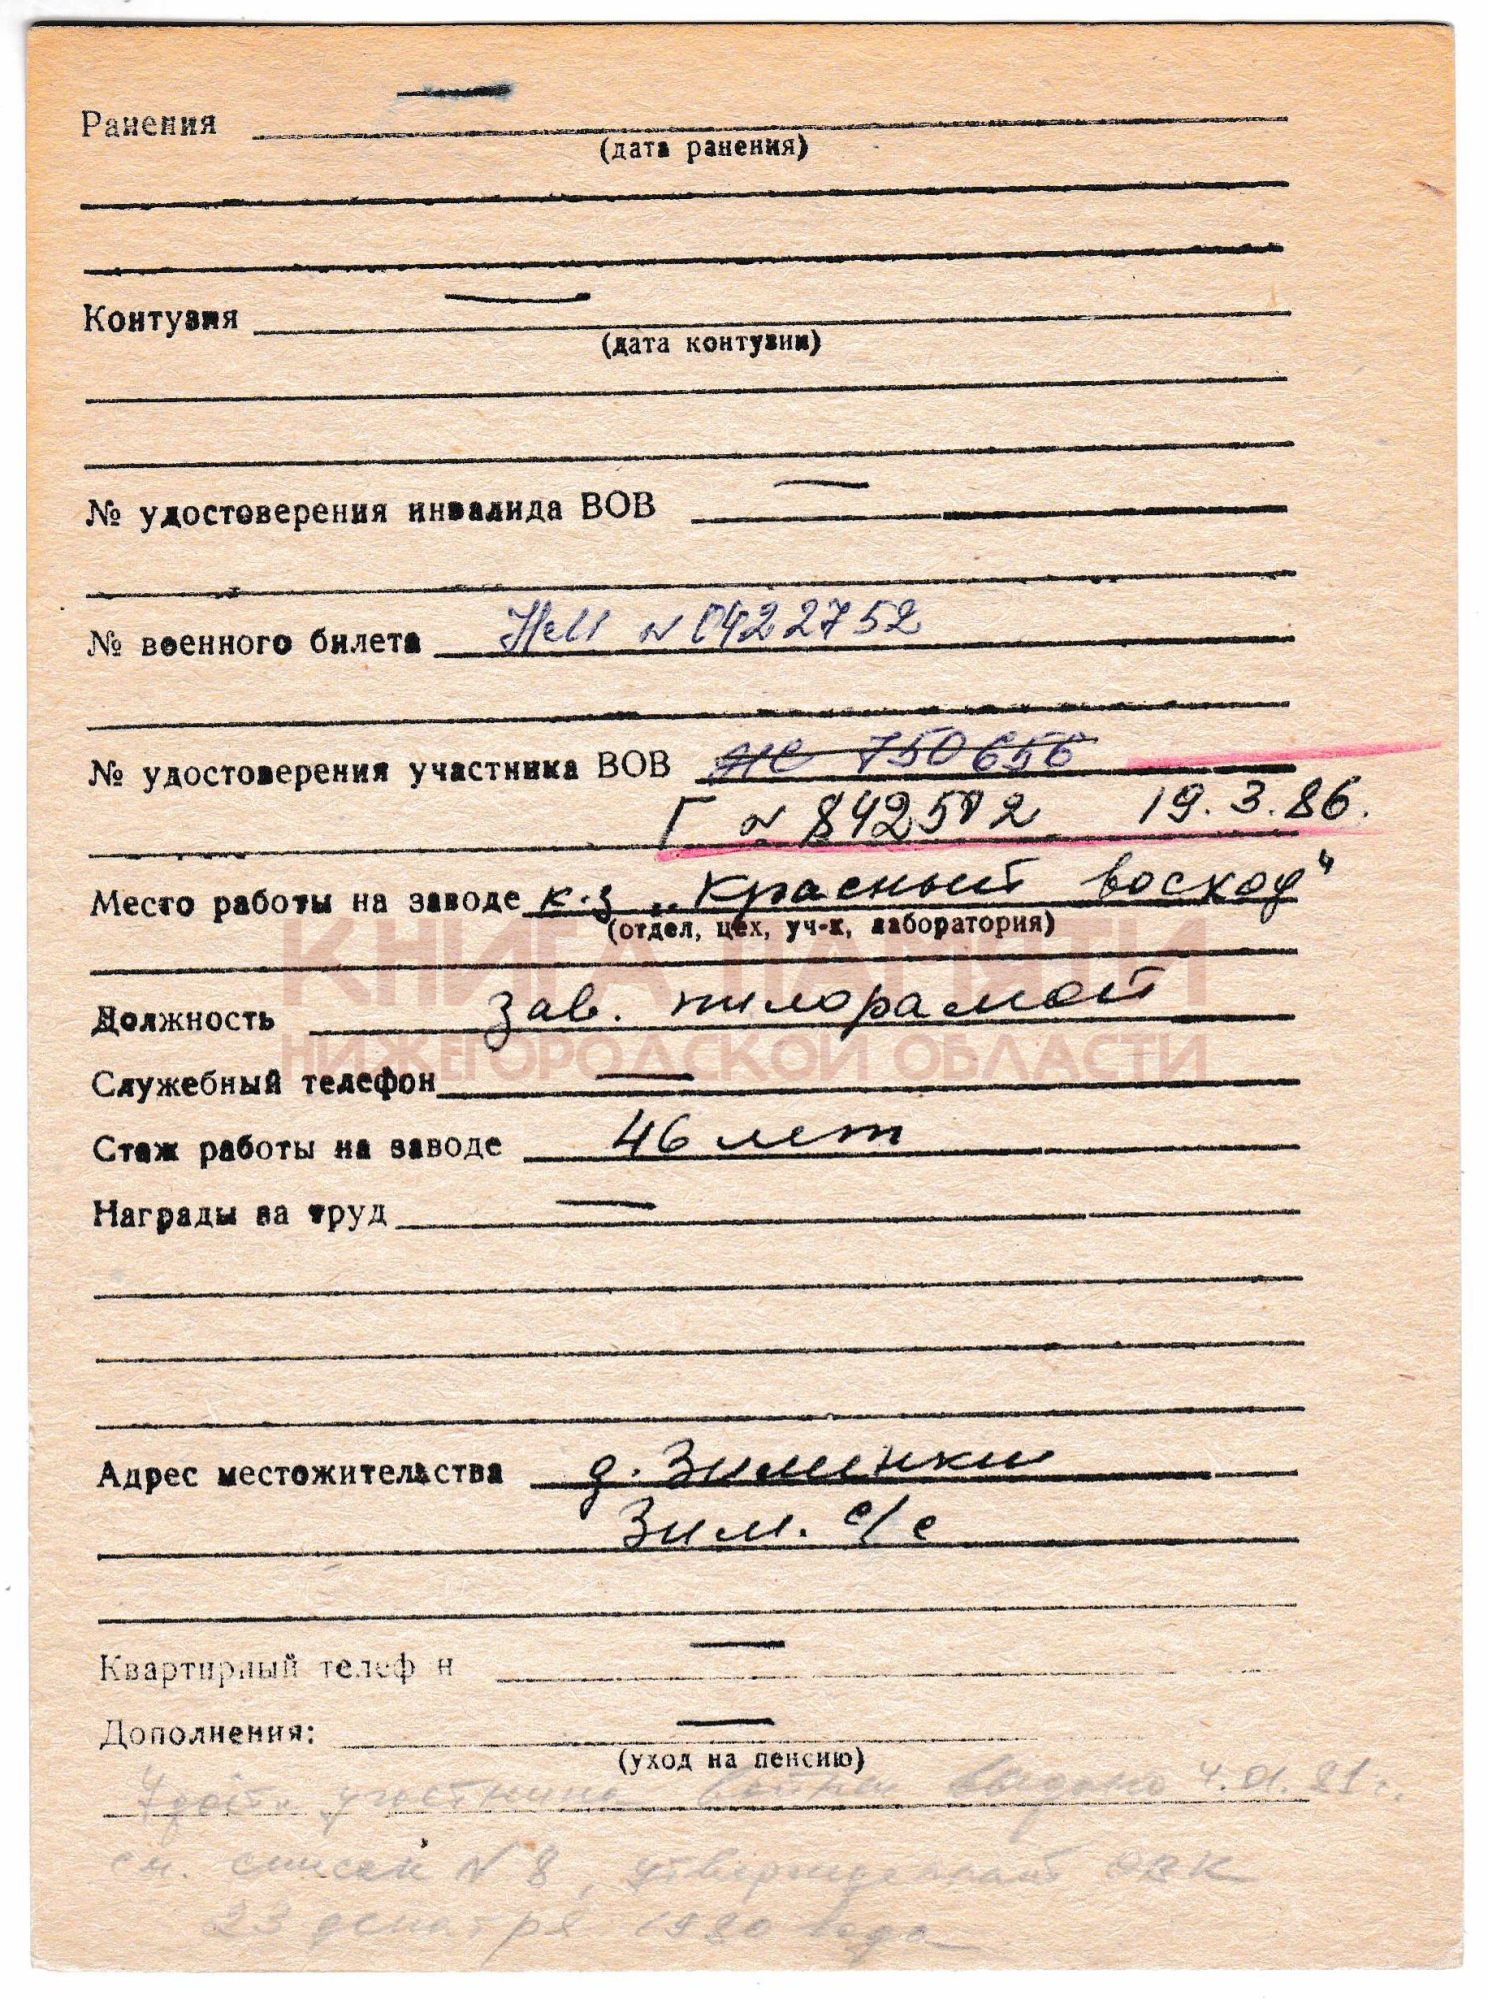 Ранения —
(дата ранения)
Контузия —
(дата контузии)
№ удостоверения инвалида ВОВ —
№ военного билета НеШ № 0422752
№ удостоверения участника ВОВ 750656
Г № 842512 19.3.86.
Место работы на заводе к-з „Красный восход"
(отдел, цех, уч-к, лаборатория)
КНИГА ПАМЯТИ
Должность зав. пилорамой
НИЖЕГОРОДСКОЙ ОБЛАСТИ
Служебный телефон —
Стаж работы на заводе 46 лет
Награды за труд —
Адрес местожительства д. Зименки
Зим. с/с
Квартирный телеф н —
Дополнения: —
(уход на пенсию)
Удост. участника войны выдано 4.01.81 г.
см. список № 8, утвержденный ОВК
23 декабря 1980 года